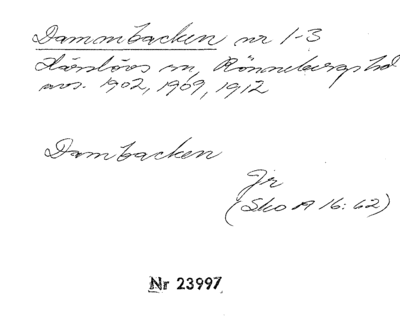 Dammbacken nr 1-3
Härslövs sn, Rönnebergs hd
avs. 1902, 1909, 1912
Dambacken
Jr
(Sko A 16:62)
Nr 23997